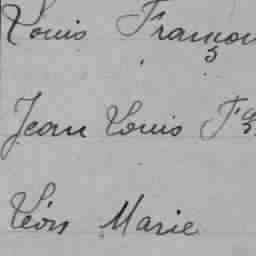 Louis François
Jean Louis
Léon Marie